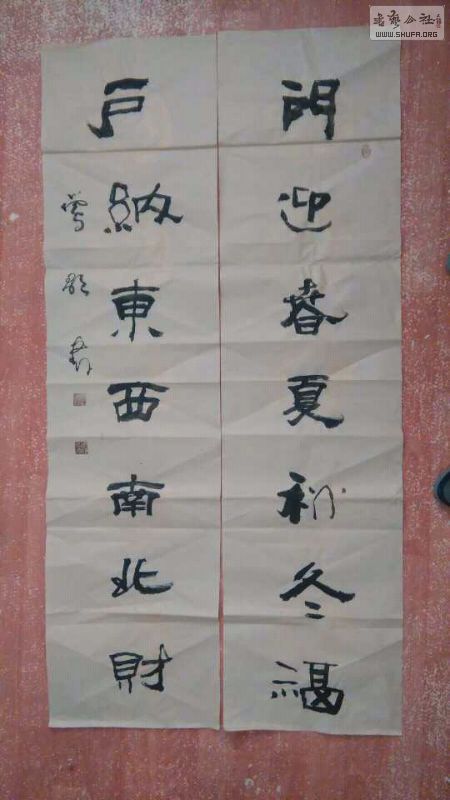 門迎春夏秋冬福
戶納東西南北財
書藝公社
WWW.SHUFA.ORG